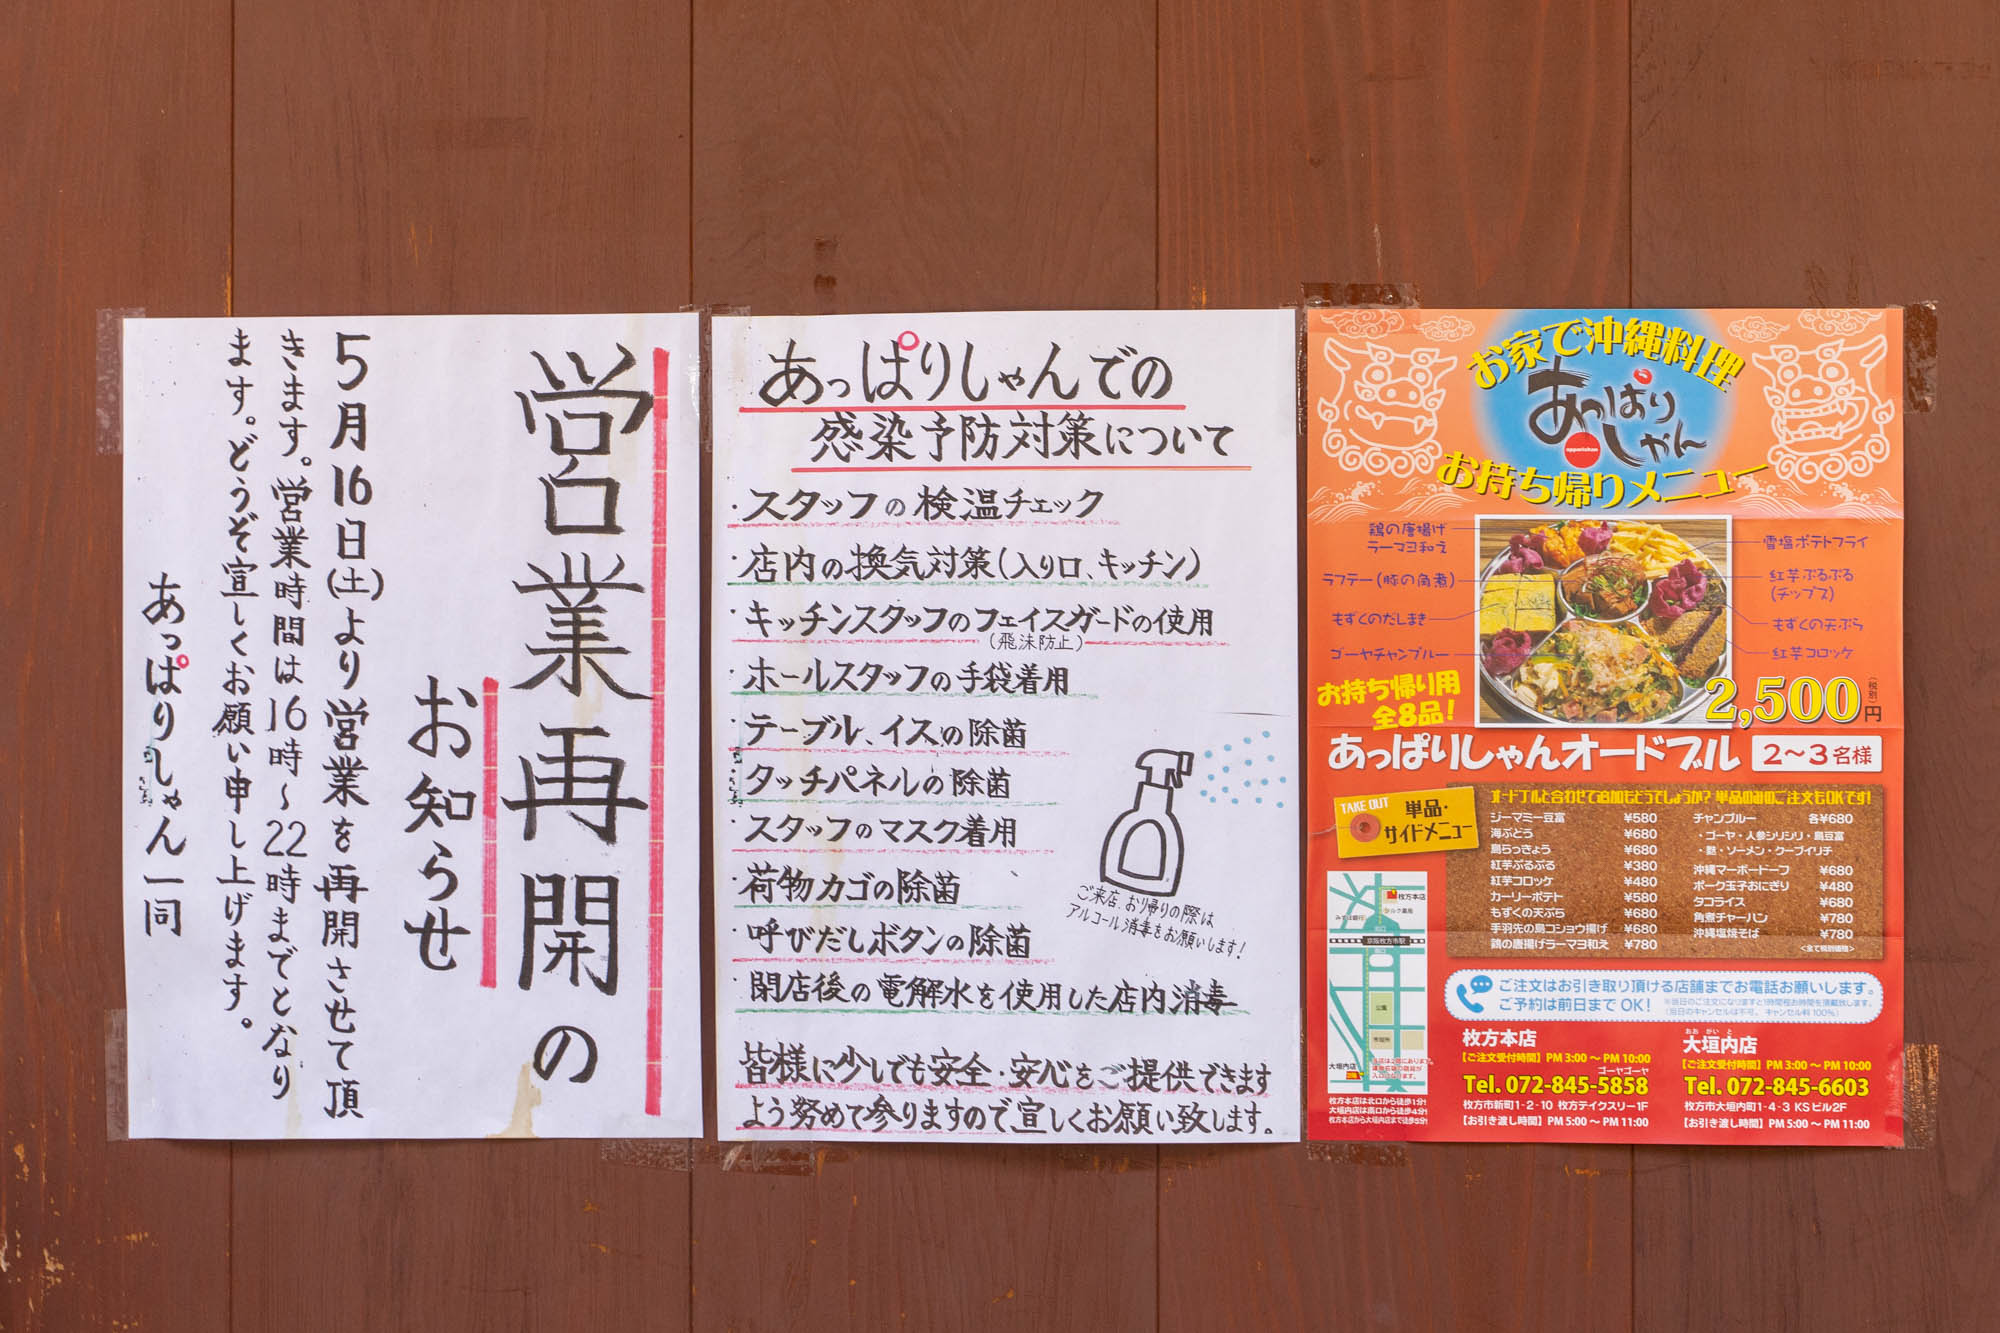 営業再開の
お知らせ
5月16日(土)より営業を再開させて頂
きます。営業時間は16時〜22時までとなり
ます。どうぞ宜しくお願い申し上げます。
あっぱりしゃん一同
あっぱりしゃんでの
感染予防対策について
・スタッフの検温チェック
・店内の換気対策(入り口、キッチン)
・キッチンスタッフのフェイスガードの使用
(飛沫防止)
・ホールスタッフの手袋着用
・テーブル、イスの除菌
・タッチパネルの除菌
・スタッフのマスク着用
・荷物カゴの除菌
・呼びだしボタンの除菌
・閉店後の電解水を使用した店内消毒
ご来店、お帰りの際は
アルコール消毒をお願いします!
皆様に少しでも安全・安心をご提供できます
よう努めて参りますので宜しくお願い致します。
お家で沖縄料理
あっぱりしゃん
apparishan
お持ち帰りメニュー
鶏の唐揚げ
ラーマヨ和え
ラフテー(豚の角煮)
もずくのだしまき
ゴーヤチャンプルー
雪塩ポテトフライ
紅芋ぷるぷる
(チップス)
もずくの天ぷら
紅芋コロッケ
お持ち帰り用
全8品!
2,500円(税別)
あっぱりしゃんオードブル 2〜3名様
TAKE OUT
単品・
サイドメニュー
オードブルと合わせて追加もどうでしょうか? 単品のみのご注文もOKです!
ジーマミー豆富 ¥580
海ぶどう ¥680
島らっきょう ¥680
紅芋ぷるぷる ¥380
紅芋コロッケ ¥480
カーリーポテト ¥580
もずくの天ぷら ¥680
手羽先の島コショウ揚げ ¥680
鶏の唐揚げラーマヨ和え ¥780
チャンプルー 各¥680
・ゴーヤ・人参シリシリ・島豆富
・麩・ソーメン・クーブイリチ
沖縄マーボードーフ ¥680
ポーク玉子おにぎり ¥480
タコライス ¥680
角煮チャーハン ¥780
沖縄塩焼そば ¥780
<全て税別価格>
枚方本店
京阪枚方市駅
公園
市役所
大垣内店
枚方本店は北口から徒歩1分!
大垣内店は南口から徒歩4分!
枚方本店から大垣内店まで徒歩5分!
ご注文はお引き取り頂ける店舗までお電話お願いします。
ご予約は前日までOK!
※当日のご注文になりますと1時間程お時間を頂戴致します。
(当日のキャンセルは不可。キャンセル料100%)
枚方本店
【ご注文受付時間】PM 3:00 〜 PM 10:00
ゴーヤゴーヤ
Tel. 072-845-5858
枚方市新町1-2-10 枚方テイクスリー1F
【お引き渡し時間】PM 5:00 〜 PM 11:00
おおがいと
大垣内店
【ご注文受付時間】PM 3:00 〜 PM 10:00
Tel. 072-845-6603
枚方市大垣内町1-4-3 KSビル2F
【お引き渡し時間】PM 5:00 〜 PM 11:00